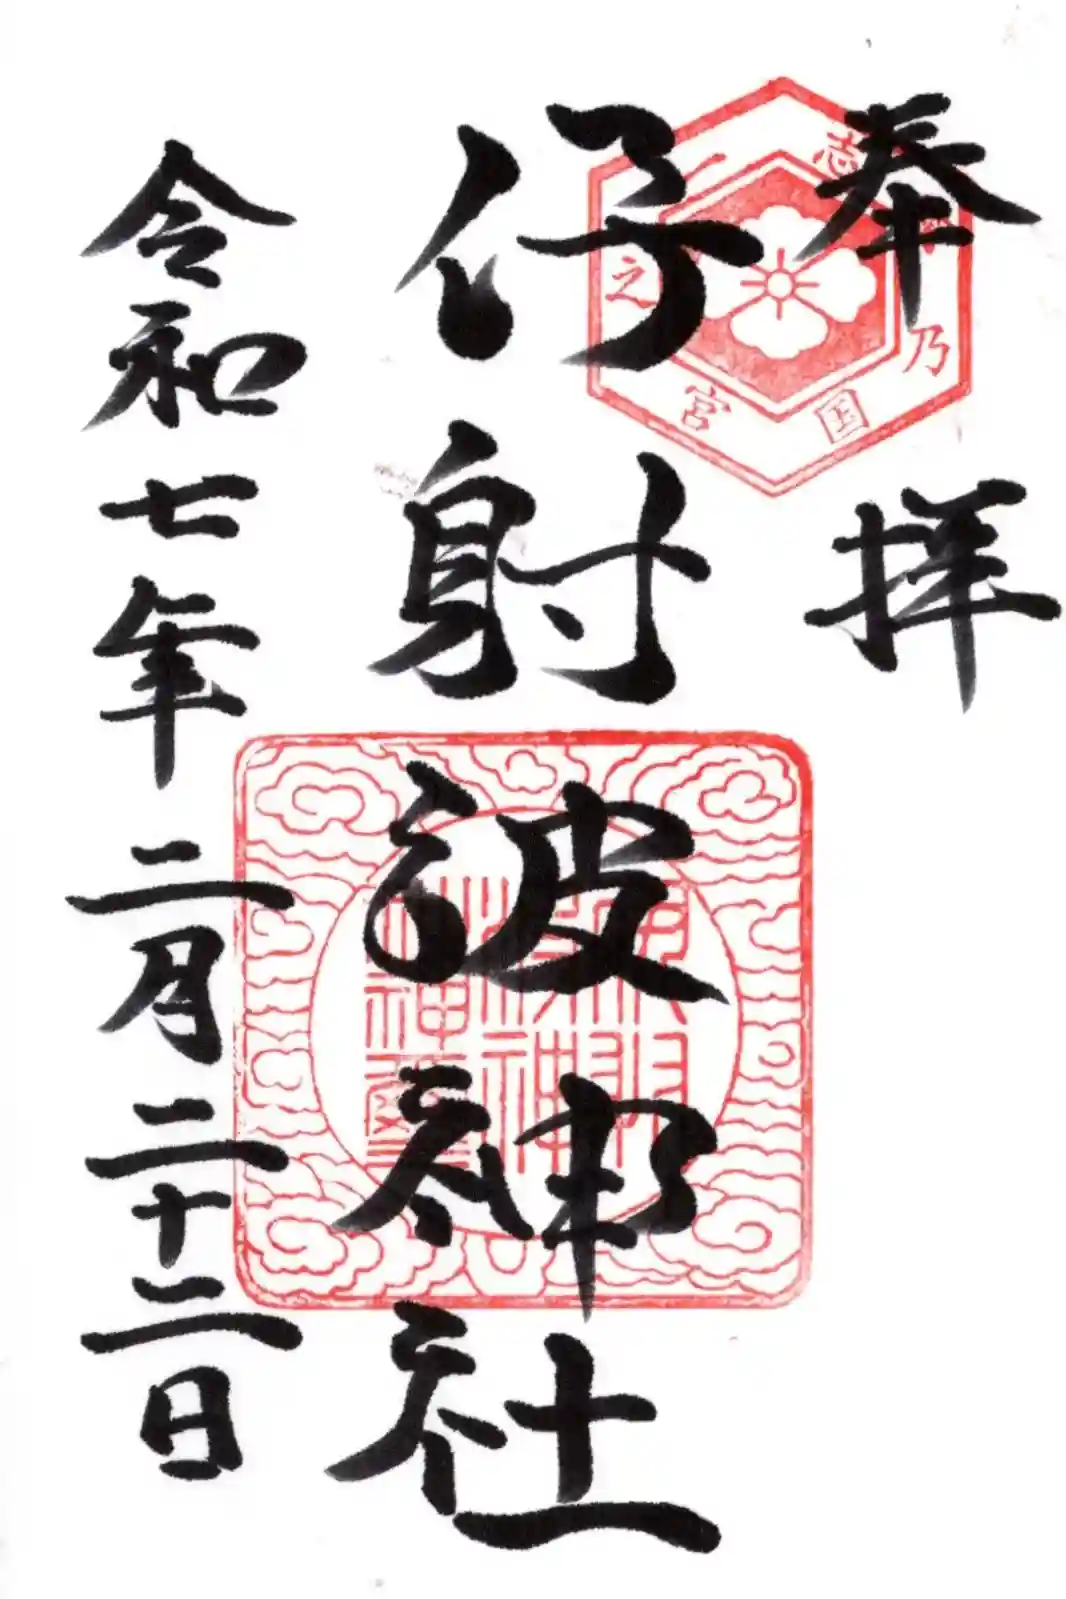 奉拝
志摩乃国一之宮
伊射波神社
令和七年二月二十二日